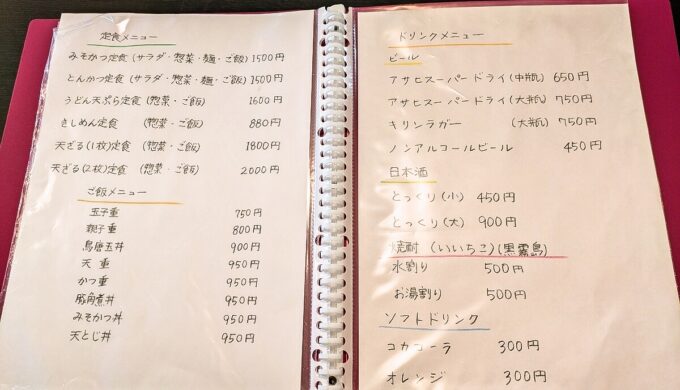 定食メニュー
みそかつ定食 (サラダ・惣菜・麺・ご飯) 1500円
とんかつ定食 (サラダ・惣菜・麺・ご飯) 1500円
うどん天ぷら定食 (惣菜・ご飯) 1600円
きしめん定食 (惣菜・ご飯) 880円
天ざる(1枚)定食 (惣菜・ご飯) 1800円
天ざる(2枚)定食 (惣菜・ご飯) 2000円
ご飯メニュー
玉子重 750円
親子重 800円
鳥唐玉丼 900円
天重 950円
かつ重 950円
豚角煮丼 950円
みそかつ丼 950円
天とじ丼 950円
ドリンクメニュー
ビール
アサヒスーパードライ(中瓶) 650円
アサヒスーパードライ(大瓶) 750円
キリンラガー (大瓶) 750円
ノンアルコールビール 450円
日本酒
とっくり(小) 450円
とっくり(大) 900円
焼酎 (いいちこ)(黒霧島)
水割り 500円
お湯割り 500円
ソフトドリンク
コカコーラ 300円
オレンジ 300円